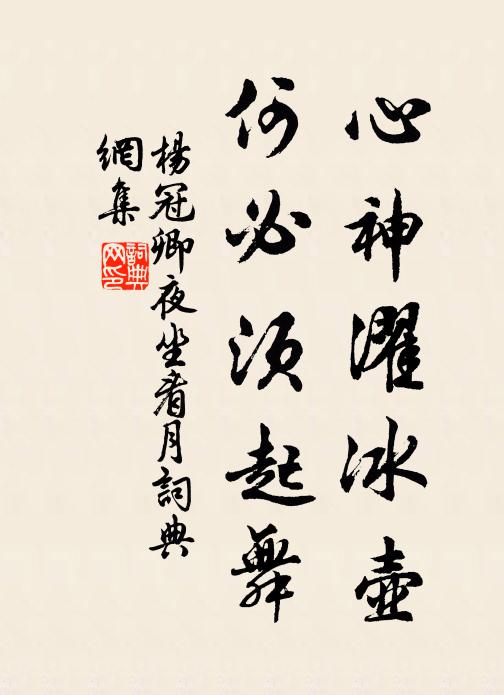 心神濯冰壺
何必須起舞
楊冠卿夜坐看月詞典
網集
詞典網印